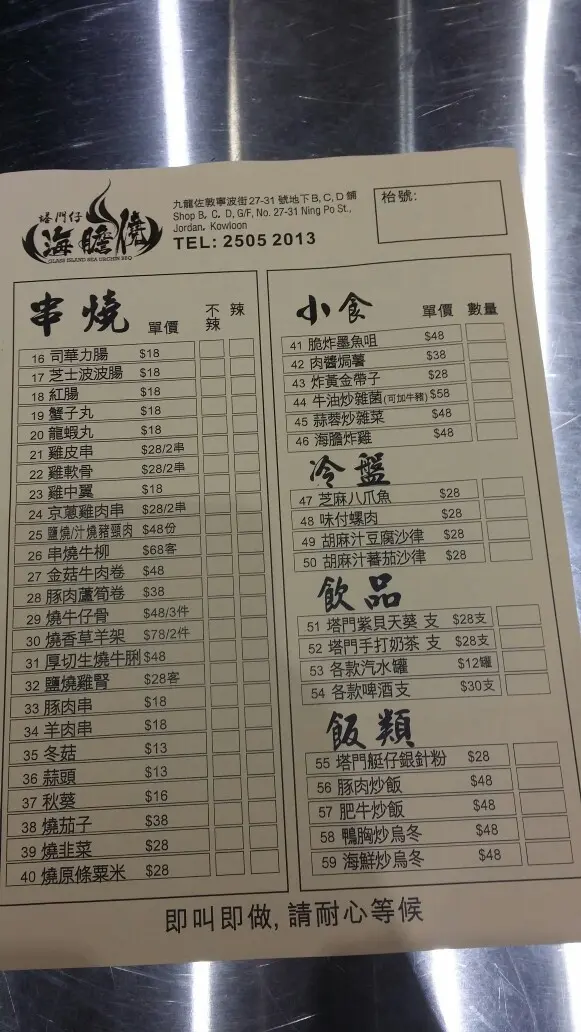 塔門仔
海膽燒
GLASS ISLAND SEA URCHIN BBQ
九龍佐敦寧波街27-31 號地下B, C, D 舖
Shop B, C, D, G/F, No. 27-31 Ning Po St.,
Jordan, Kowloon
TEL: 2505 2013
枱號:
串燒 單價 不辣 辣
16 司華力腸 $18
17 芝士波波腸 $18
18 紅腸 $18
19 蟹子丸 $18
20 龍蝦丸 $18
21 雞皮串 $28/2串
22 雞軟骨 $28/2串
23 雞中翼 $18
24 京蔥雞肉串 $28/2串
25 鹽燒/汁燒豬頸肉 $48份
26 串燒牛柳 $68客
27 金菇牛肉卷 $48
28 豚肉蘆筍卷 $38
29 燒牛仔骨 $48/3件
30 燒香草羊架 $78/2件
31 厚切生燒牛脷 $48
32 鹽燒雞腎 $28客
33 豚肉串 $18
34 羊肉串 $18
35 冬菇 $13
36 蒜頭 $13
37 秋葵 $16
38 燒茄子 $38
39 燒韭菜 $28
40 燒原條粟米 $28
小食 單價 數量
41 脆炸墨魚咀 $48
42 肉醬焗薯 $38
43 炸黃金帶子 $28
44 牛油炒雜菌(可加牛豬) $58
45 蒜蓉炒雜菜 $48
46 海膽炸雞 $48
冷盤
47 芝麻八爪魚 $28
48 味付螺肉 $28
49 胡麻汁豆腐沙律 $28
50 胡麻汁蕃茄沙律 $28
飲品
51 塔門紫貝天葵 支 $28支
52 塔門手打奶茶 支 $28支
53 各款汽水罐 $12罐
54 各款啤酒支 $30支
飯類
55 塔門艇仔銀針粉 $28
56 豚肉炒飯 $48
57 肥牛炒飯 $48
58 鴨胸炒烏冬 $48
59 海鮮炒烏冬 $48
即叫即做, 請耐心等候